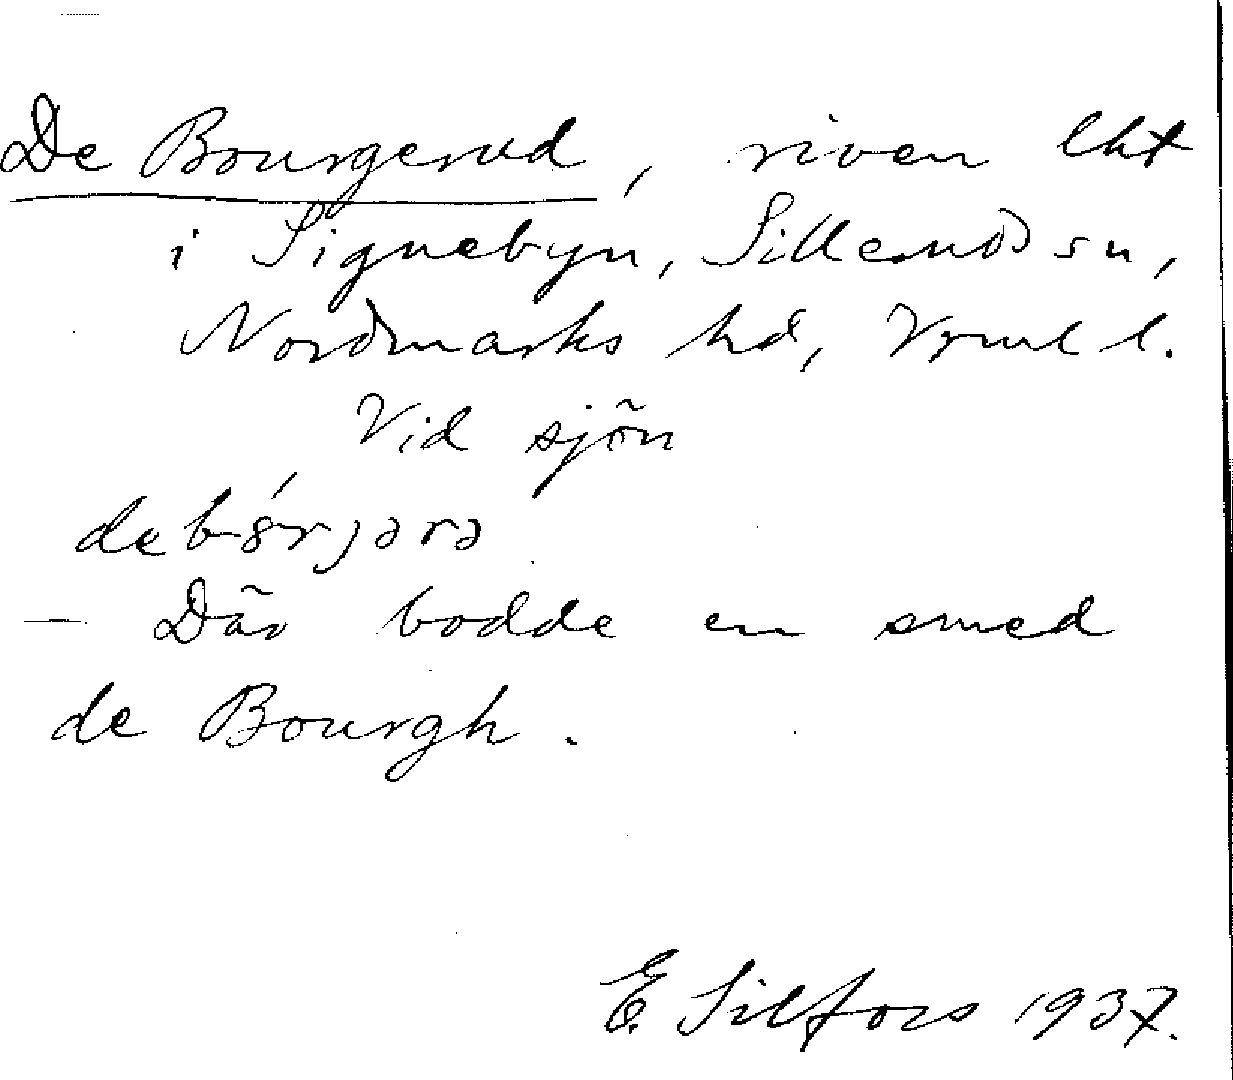 De Bourgerud, riven lht
i Signebyn, Sillerud sn,
Nordmarks hd, Vrml l.
Vid sjön
Där bodde en smed
de Bourgh.
E. Silfors 1937.